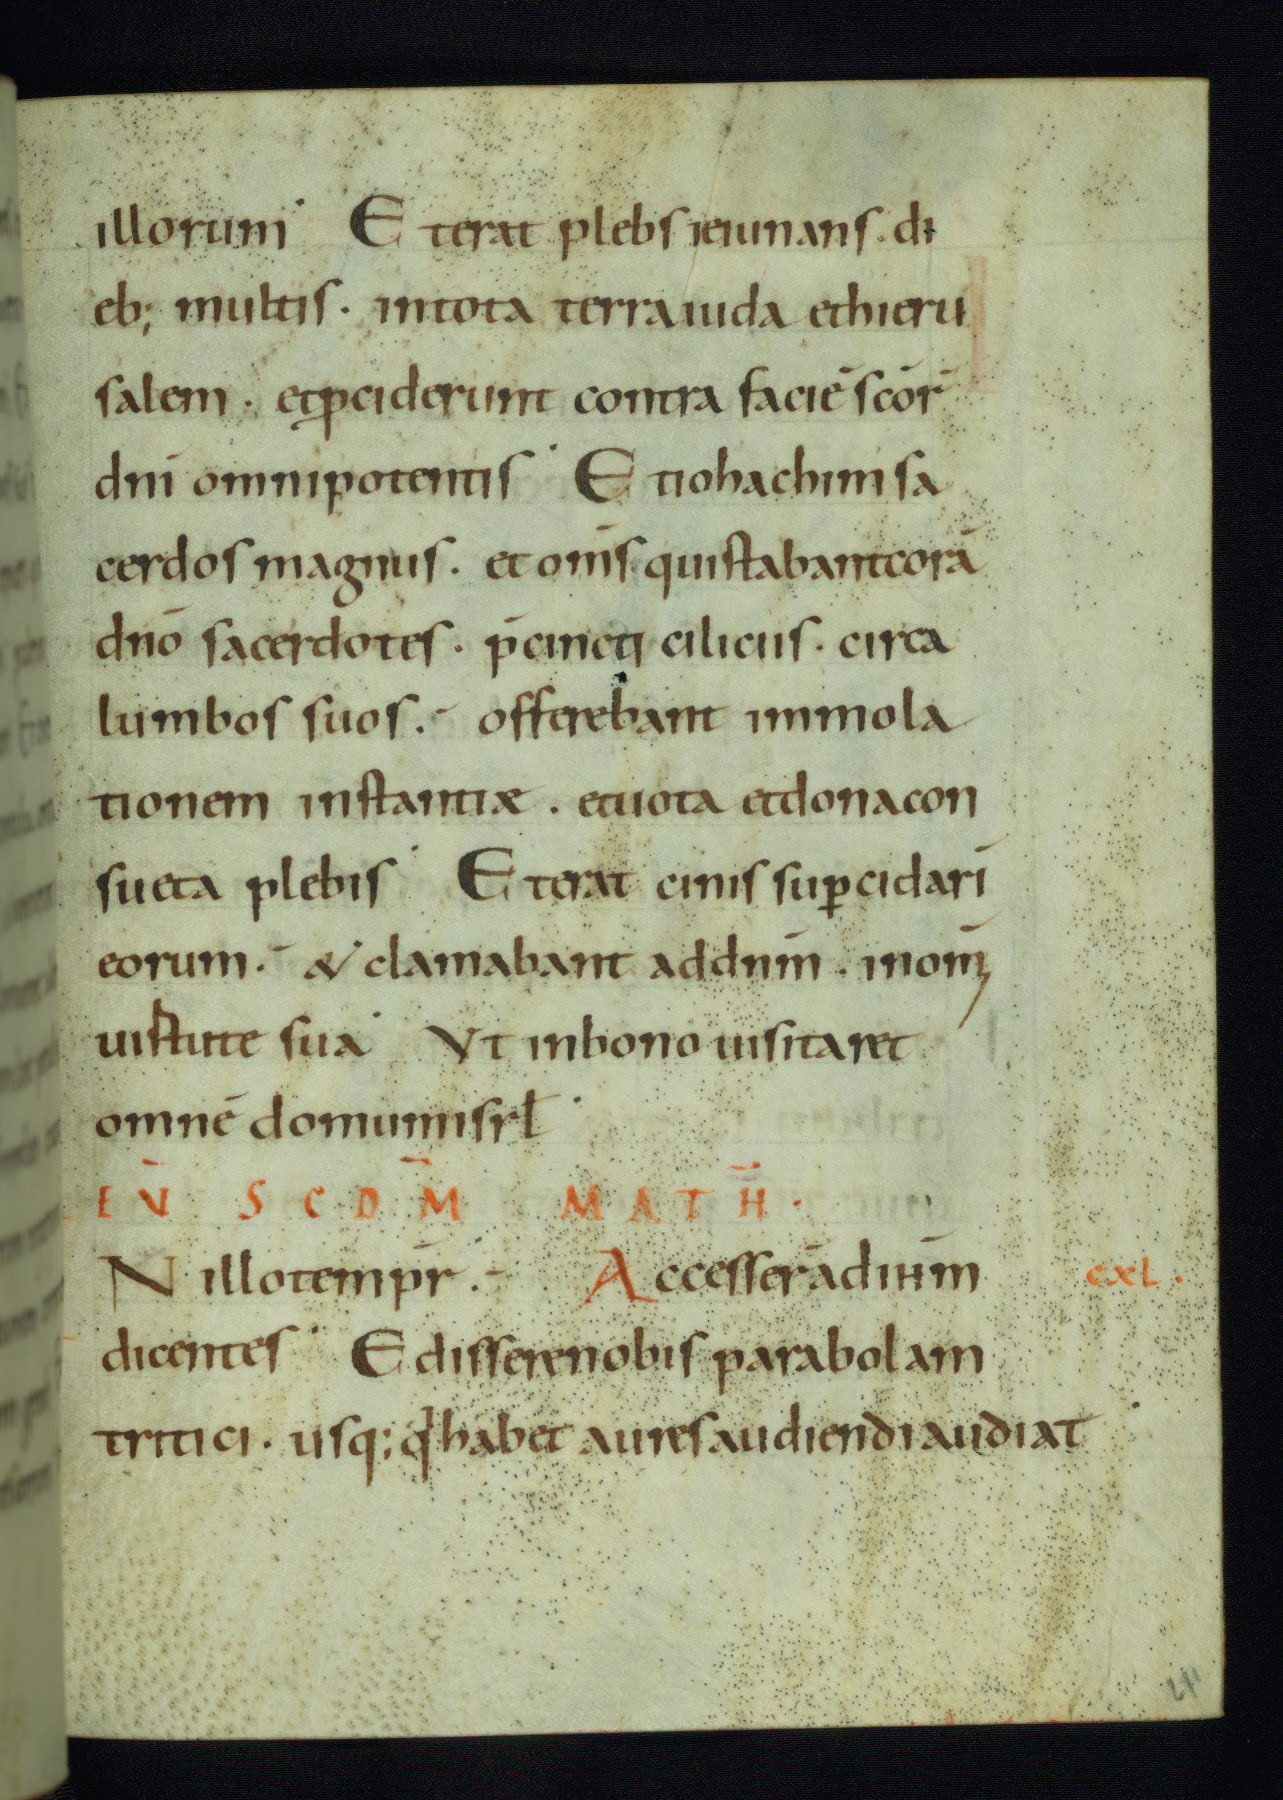 illorum· Et erat plebs ieiunans. di
eb; multis. in tota terra iuda et hieru
salem. et ꝓciderunt contra faciē scōr
dnī omnipotentis· Et iohachim sa
cerdos magnus. et omīs qui stabant corā
dnō sacerdotes. p̄cincti ciliciis. circa
lumbos suos.- offerebant immola
tionem instantiæ. et uota et dona con
sueta plebis· Et erat cinis suꝑ cidarī
eorum.- & clamabant ad dnm̄. in om̄i
uirtute sua· Ut in bono uisitaret
omnē domum isrl̄·
EV̄ SCDM̄ MATH̄.
N illo tempr̄.- Accesserā ad ihm̄
cxl.
dicentes· Edissere nobis parabolam
tritici. usq; q̄ habet aures audiendi audiat·